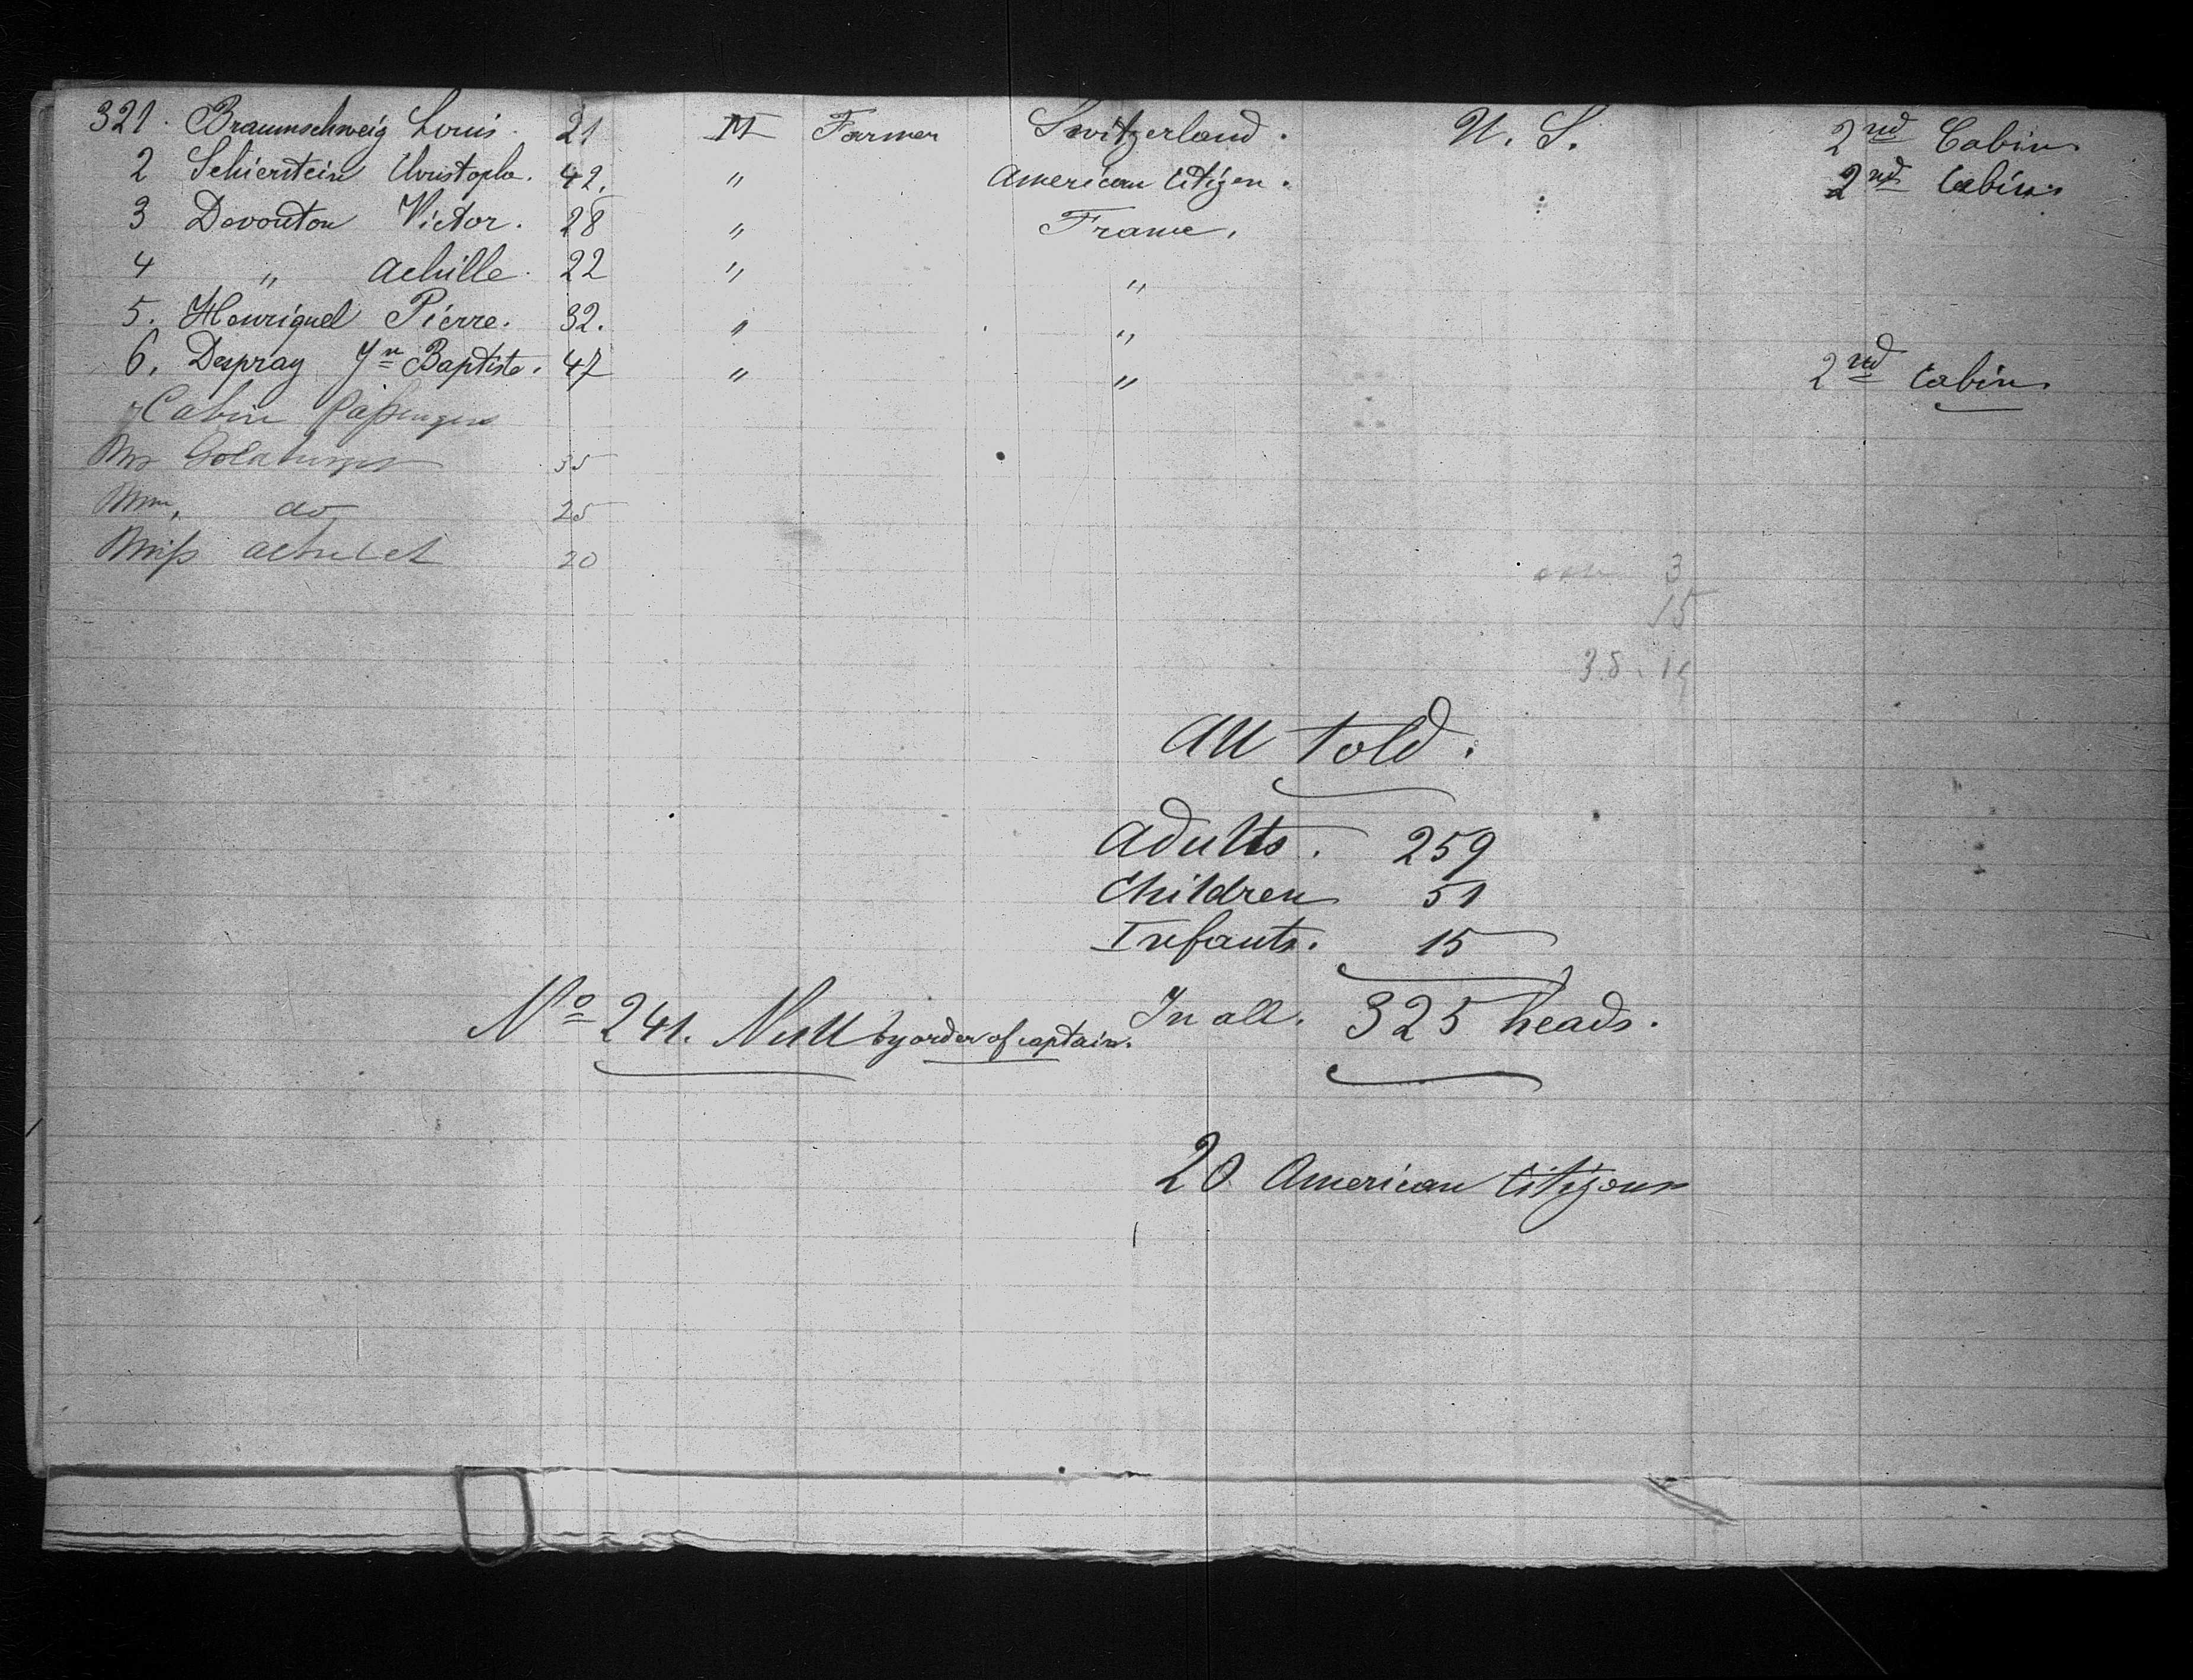 321. Braunschweig Louis. 21 M Farmer Switzerland. U. S. 2nd Cabin
2 Schierstein Christophe. 42. " American Citizen. 2nd Cabin
3 Devouton Victor. 28 " France.
4 " Achille. 22 " "
5. Henriquel Pierre. 32. " "
6. Despray Jn Baptiste. 47 " " 2nd Cabin.
Cabin Passengers
Mr 35
Mm, do 25
Miss 20
3
15
All told.
Adults. 259
Children 51
Infants. 15
In all. 325 heads.
No 241. Null by order of captain.
20 American Citizens